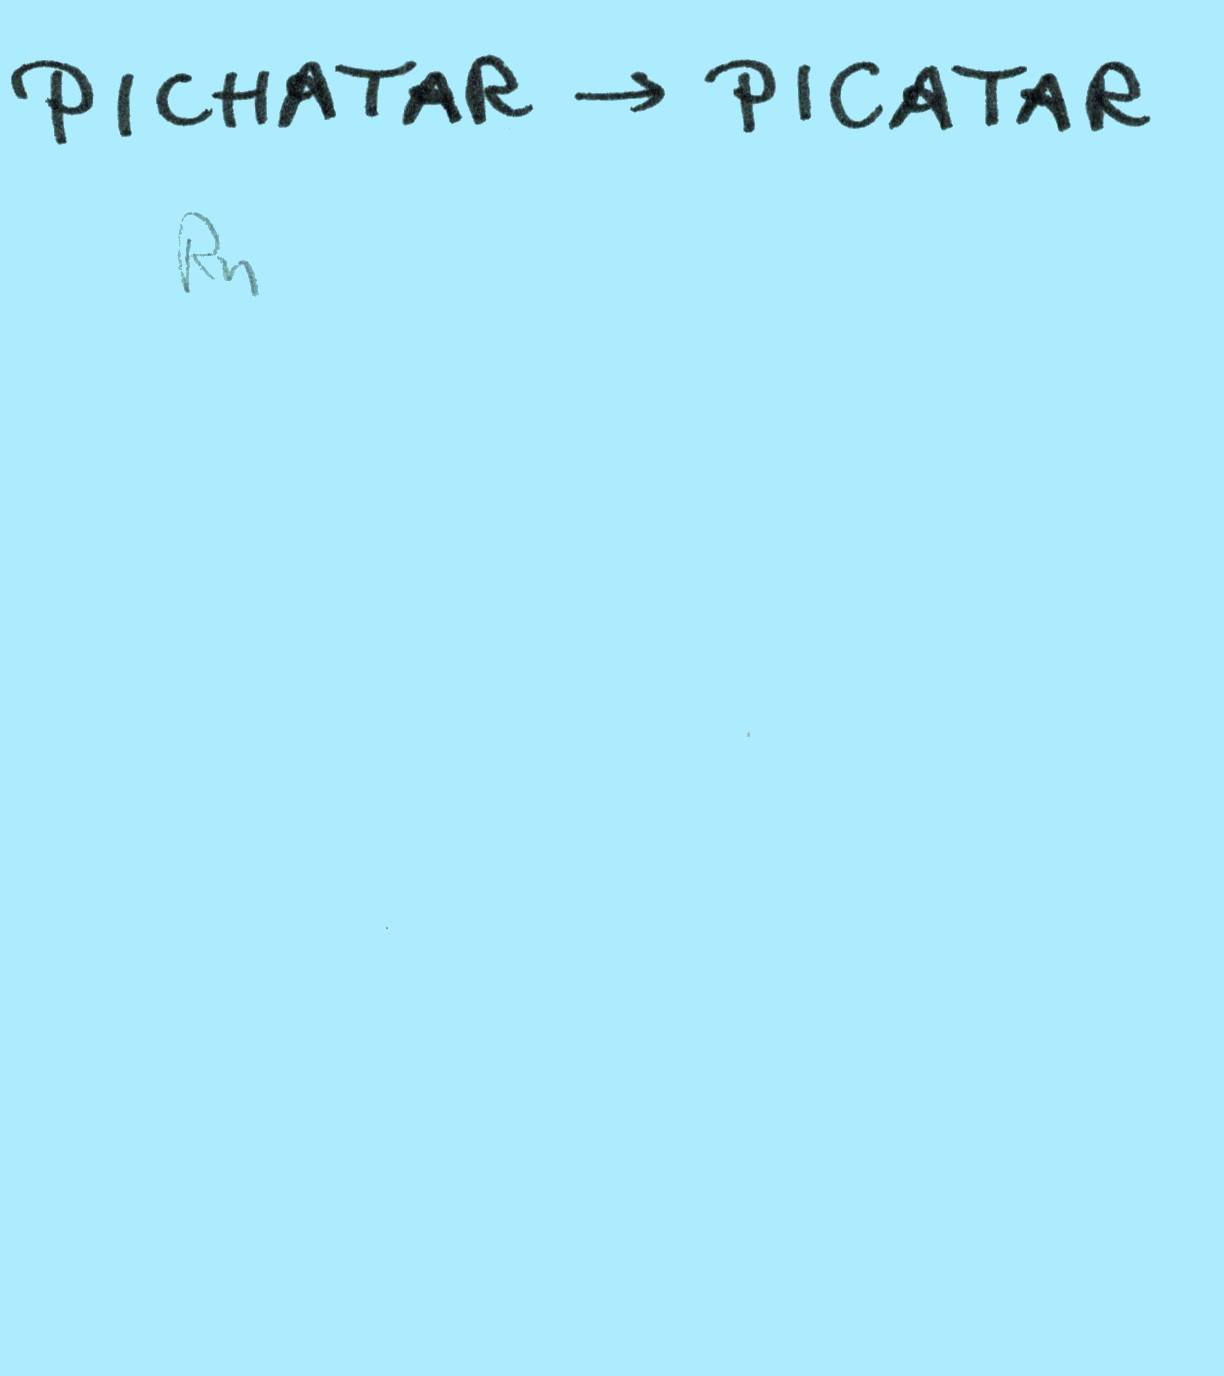 PICHATAR → PICATAR
Rn